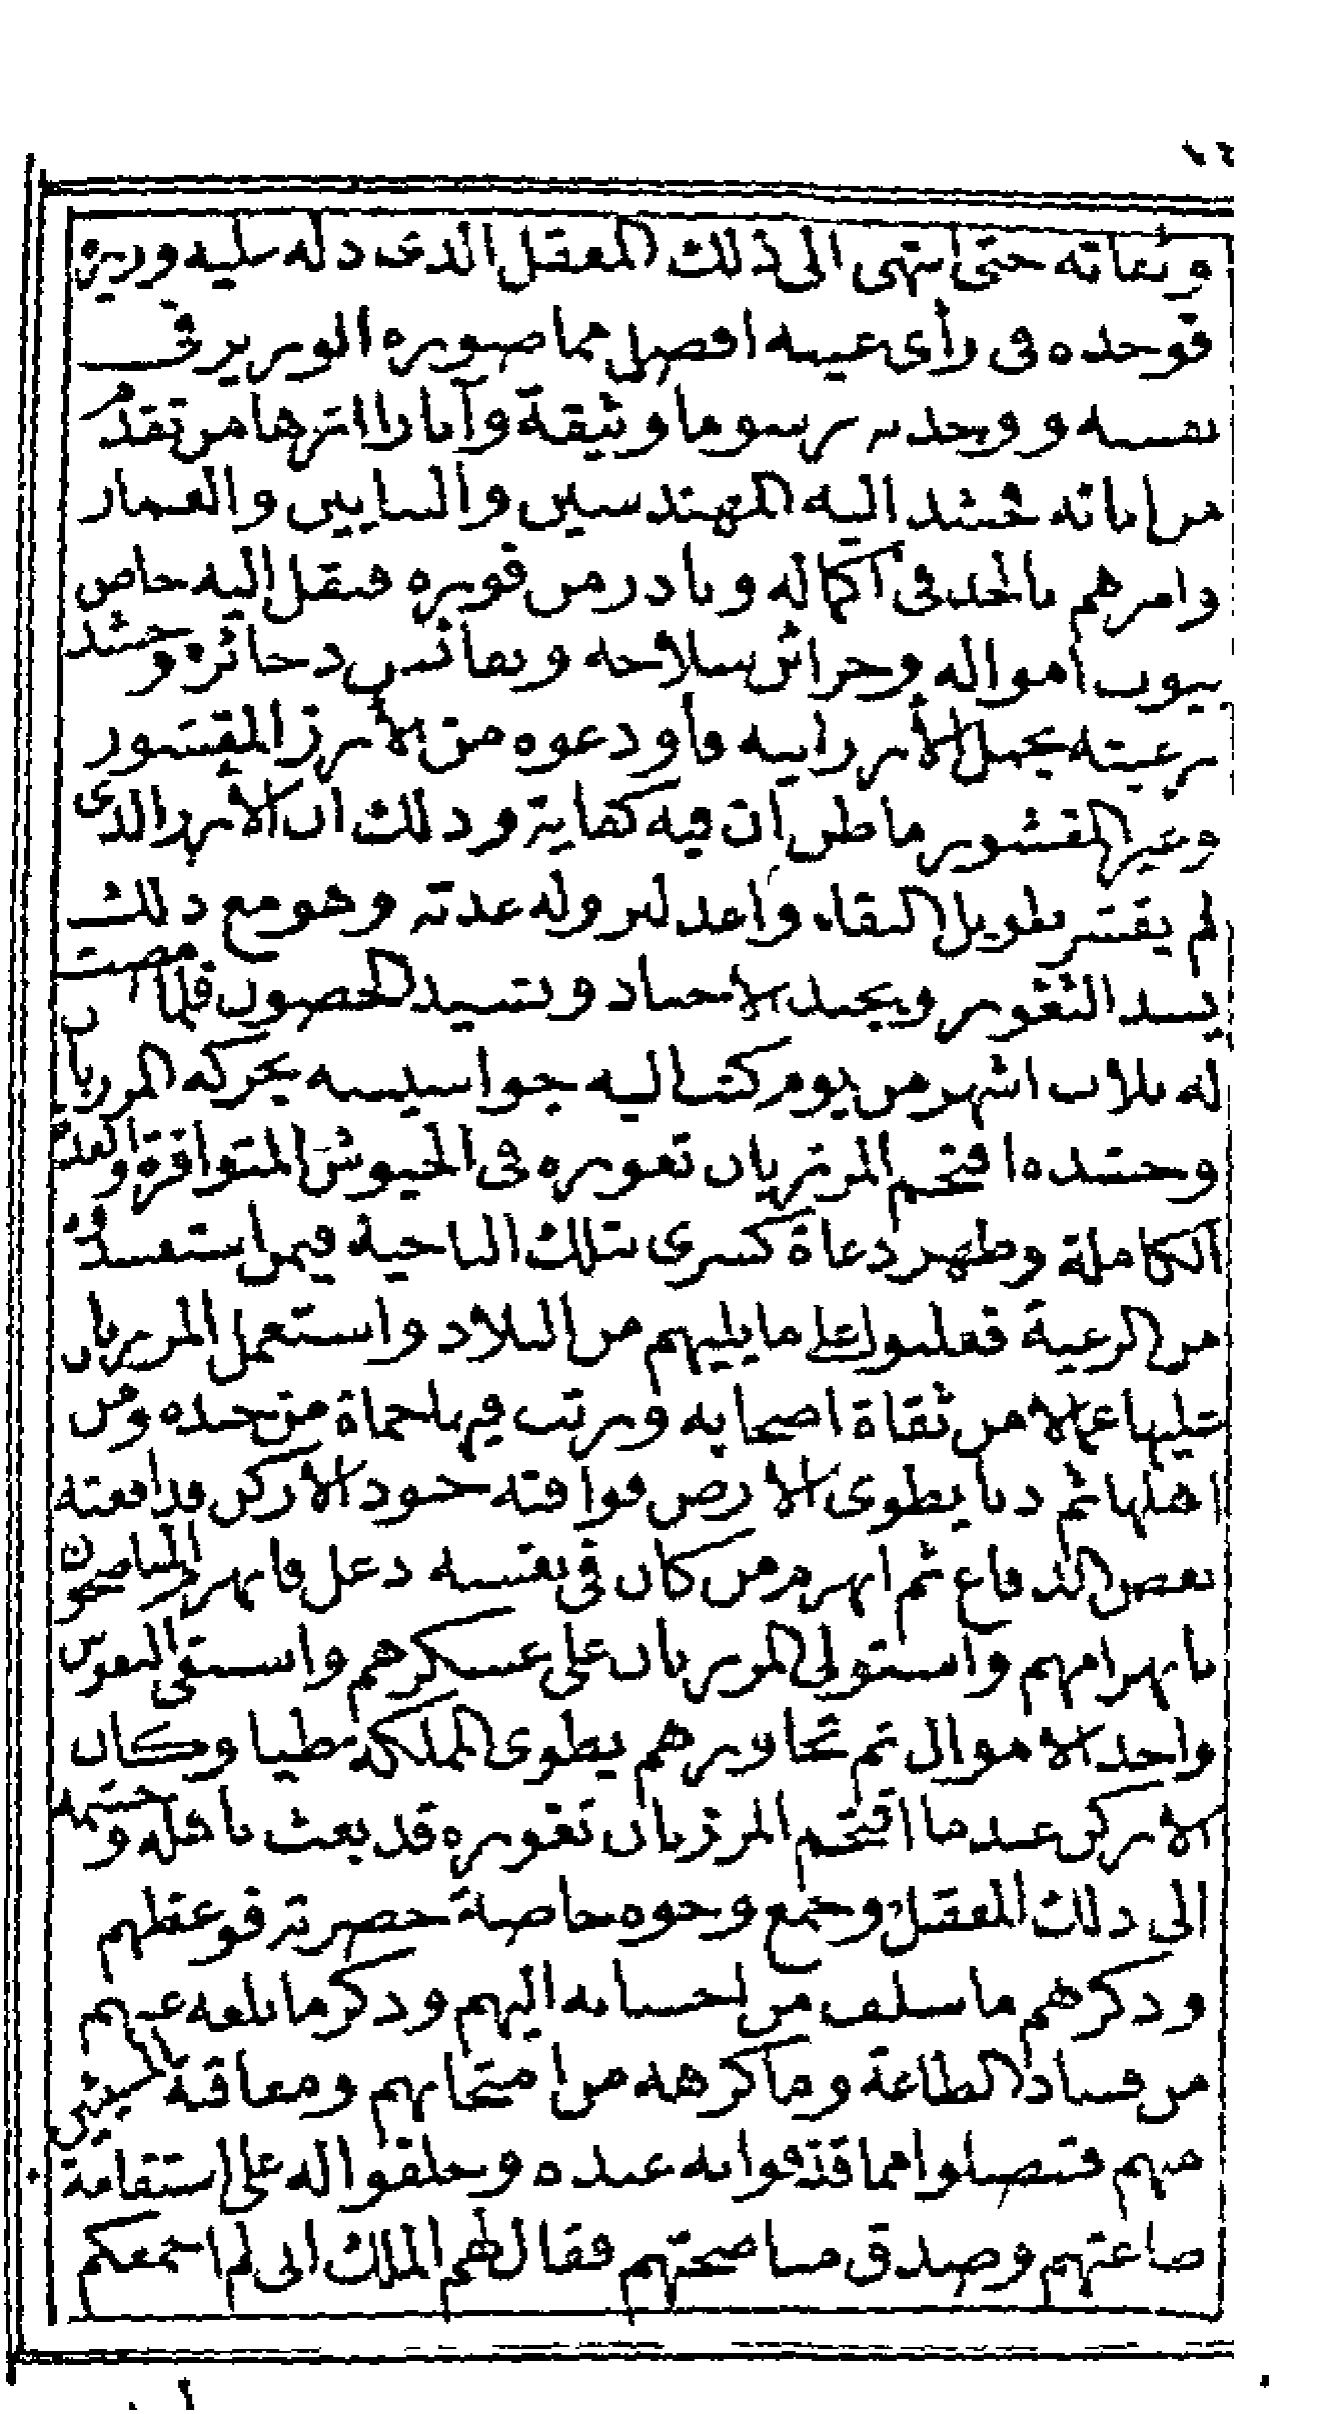 ١٤
وثقاته حتى انتهى الى ذلك المعقل الذى دله عليه وزيره
فوجده فى رأى عينه افضل مما صوره الوزير فى
نفسه ووجد به رسوما وثيقة وآبارا انهرها من تقدم
من ابائه فحشد اليه المهندسين والبنايين والعمار
وامرهم بالجد فى اكماله وبادر من فوره فنقل اليه خاص
بيوت امواله وخزائن سلاحه ونفائس ذخائره وحشد
رعيته بحمل الأرز اليه فأودعوه من الأرز المقشور
وغير المقشور ما ظن ان فيه كفاية وذلك ان الأرز الذى
لم يقشر طويل البقاء واعد لنزوله عدته وهو مع ذلك
يسد الثغور ويجند الاجناد ويشيد الحصون فلما مضت
له ثلاث اشهر من يوم كتب اليه جواسيسه بحركة المرزبان
وحشده افتحم المرزبان ثغوره فى الجيوش المتوافرة والعدة
الكاملة وظهر دعاة كسرى بتلك الناحية فيمن استفسدوه
من الرعية فغلبوا على ما يليهم من البلاد واستعمل المرزبان
عليها عمالا من ثقاة اصحابه ورتب فيها حماة من جنده ومن
اهلها ثم دنا يطوى الارض فوافته جنود الاركن فدافعته
بعض الدفاع ثم انهزم من كان فى نفسه دغل فانهزم المناصحون
بانهزامهم واستولى المرزبان على عسكرهم واستبقى النفوس
واخذ الاموال ثم تجاوزهم يطوى المملكة طيا وكان
الاركن عندما اقتحم المرزبان ثغوره قد بعث باهله وحشمه
الى ذلك المعقل وجمع وجوه خاصة حضرته فوعظهم
وذكرهم ما سلف من احسانه اليهم وذكر ما بلغه عنهم
من فساد الطاعة وما كرهه من امتحانهم ومعاقبة المسيئين
منهم فتنصلوا مما قذفوا به عنده وحلفوا له على استقامة
طاعتهم وصدق مناصحتهم فقال لهم الملك انى لم اجمعكم